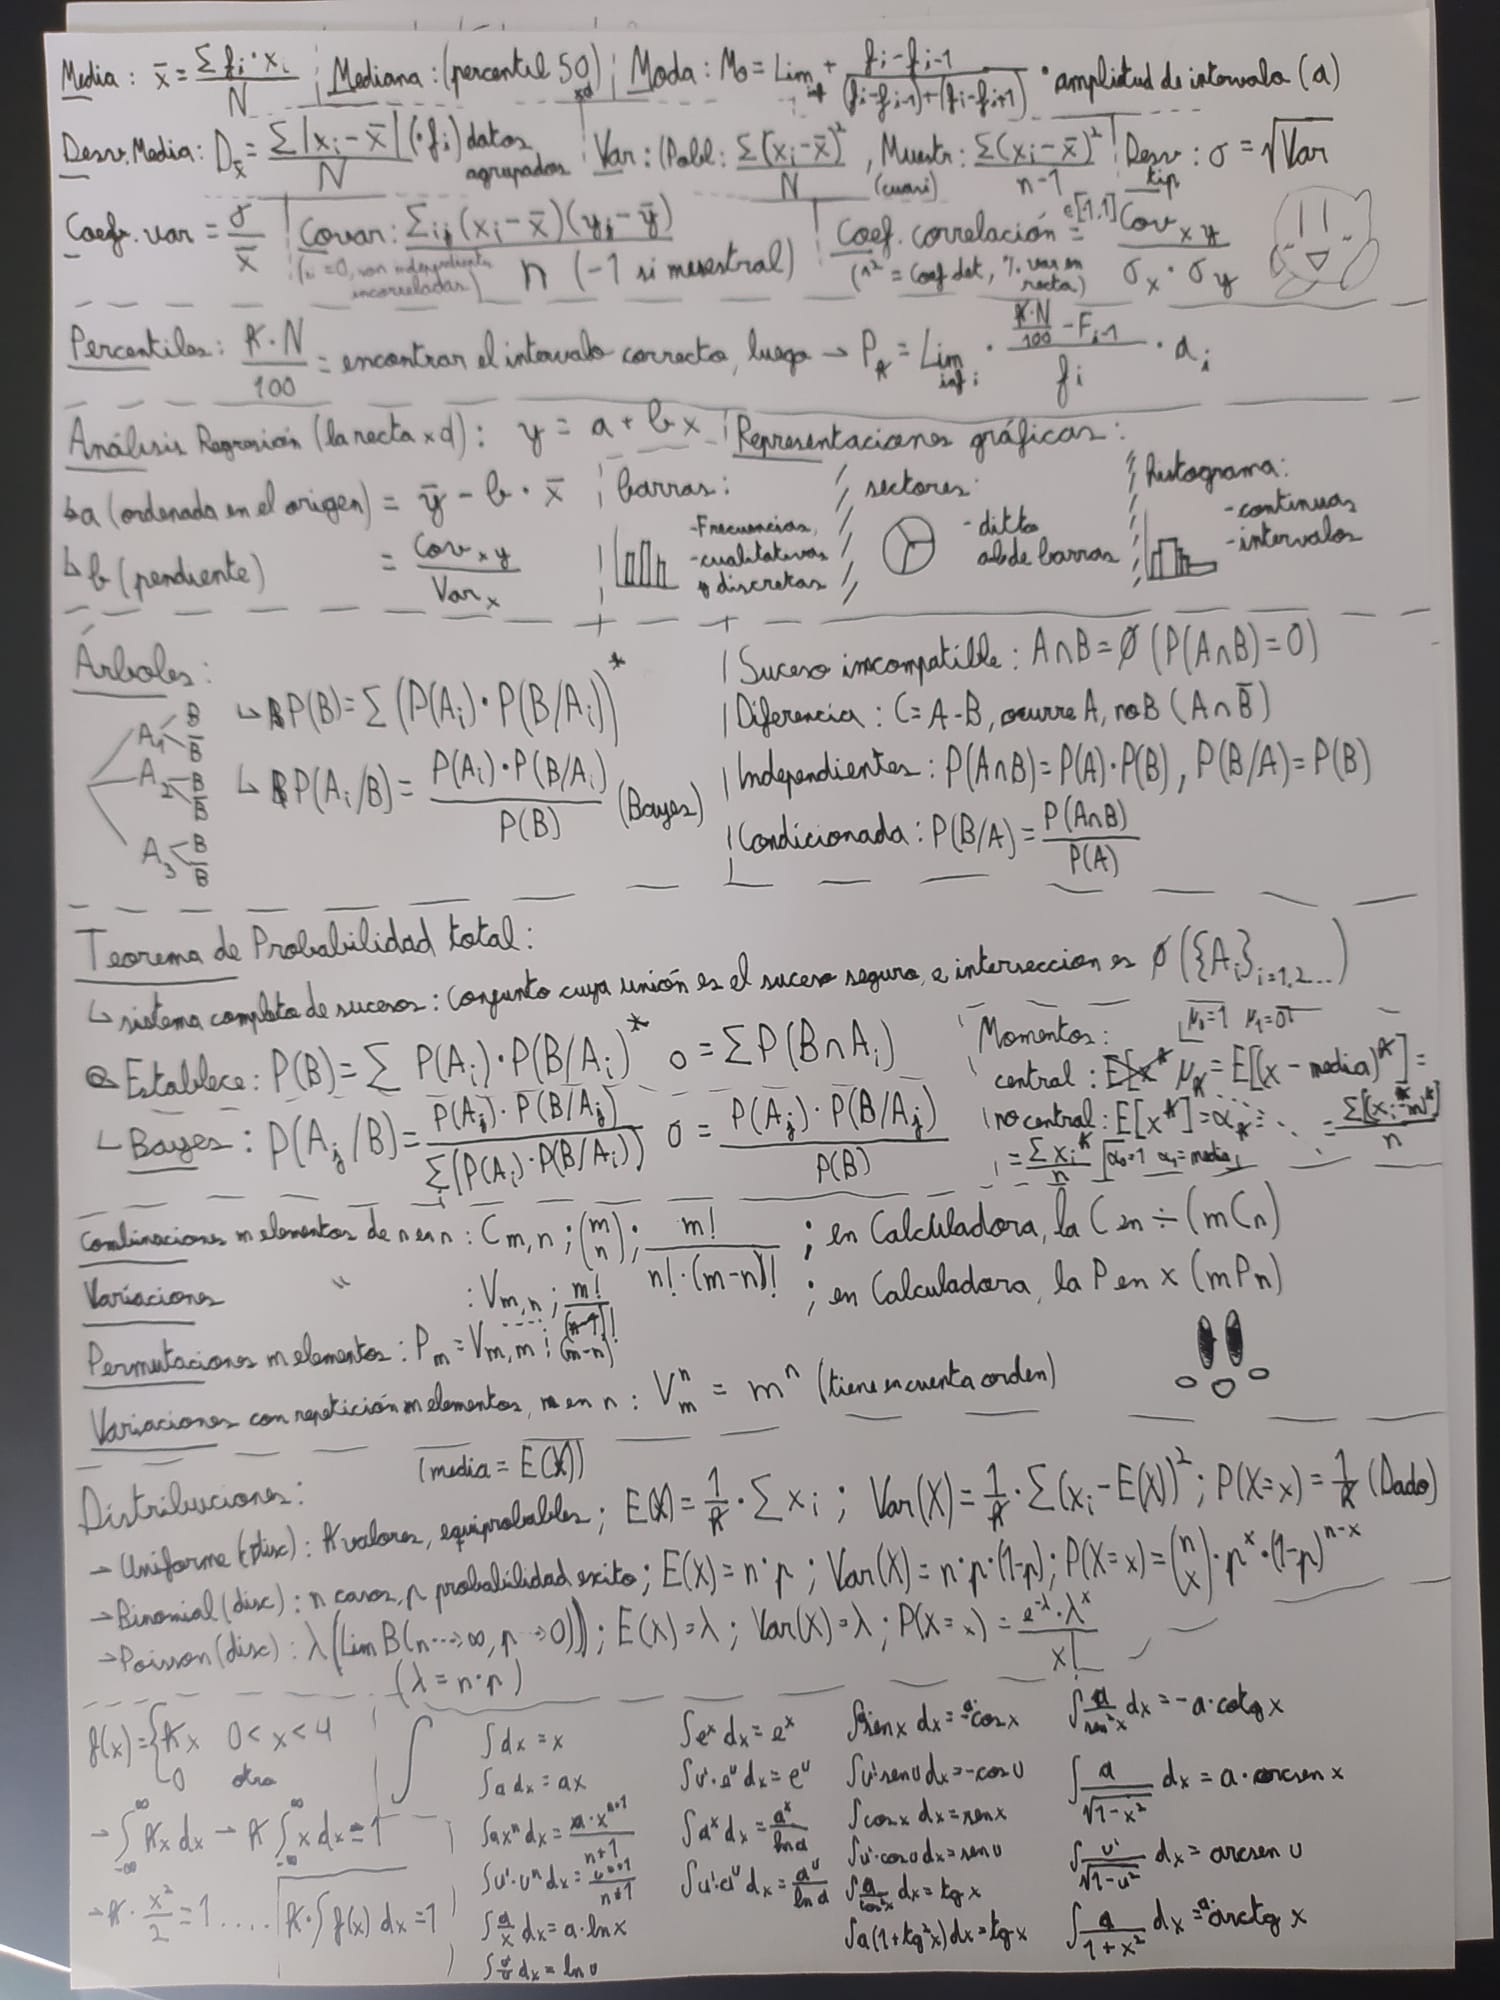 Media: x̄ = Σ fi · xi / N ¦ Mediana: (percentil 50) ¦ Moda: Mo = Lim inf + fi - fi-1 / (fi - fi-1) + (fi - fi+1) · amplitud de intervalo (a)
Desv. Media: Dx̄ = Σ |xi - x̄| (· fi) / N datos agrupados ¦ Var: (Pobl: Σ(xi - x̄)² / N, Muestr: (cuasi) Σ(xi - x̄)² / n-1 ¦ Desv tip: σ = √Var
Coef. var = σ / x̄ ¦ Covar: Σij (xi - x̄)(yj - ȳ) / n (-1 si muestral) ¦ Coef. correlación = Cov xy / σx · σy
(r² = Coef det, % var en recta)
Percentiles: K·N / 100 = encontrar el intervalo correcto, luego → PK = Lim inf i · K·N/100 - Fi-1 / fi · ai
Análisis Regresión (la recta xd): y = a + bx ¦ Representaciones gráficas:
↳ a (ordenada en el origen) = ȳ - b · x̄ ¦ barras: // sectores: // histograma:
↳ b (pendiente) = Cov xy / Var x
-Frecuencias,
-cualitativas
o discretas
- ditto
de barras
-continuas
-intervalos
Árboles:
A1 B B̄
A2 B B̄
A3 B B̄
↳ P(B) = Σ (P(Ai) · P(B/Ai))*
↳ P(Ai/B) = P(Ai) · P(B/Ai) / P(B) (Bayes)
Suceso incompatible: A∩B = Ø (P(A∩B) = 0)
Diferencia: C = A-B, ocurre A, no B (A∩B̄)
Independientes: P(A∩B) = P(A)·P(B), P(B/A) = P(B)
Condicionada: P(B/A) = P(A∩B) / P(A)
Teorema de Probabilidad total:
↳ sistema completo de sucesos: conjunto cuya unión es el suceso seguro, e interseccion es Ø ({Ai} i=1,2...)
Establece: P(B) = Σ P(Ai) · P(B/Ai)* o = Σ P(B∩Ai)
↳ Bayes: P(Aj/B) = P(Aj) · P(B/Aj) / Σ(P(Ai) · P(B/Ai)) o = P(Aj) · P(B/Aj) / P(B)
Momentos: μ0=1 μ1=0
central: μK = E[(x - media)^K] = Σ[(xi - m)^K] / n
no central: E[x^K] = αK = Σ xi^K / n α0=1 α1=media
Combinaciones m elementos de n en n: Cm,n ; (m n) ; m! / n!·(m-n)! ; en Calculadora, la C en ÷ (mCn)
Variaciones " : Vm,n ; m! / (m-n)! ; en Calculadora, la P en x (mPn)
Permutaciones m elementos: Pm = Vm,m ;
Variaciones con repetición m elementos, n en n: V m n = m^n (tiene en cuenta orden)
Distribuciones: (media = E(X))
→ Uniforme (disc): K valores, equiprobables; E(X) = 1/K · Σ xi ; Var(X) = 1/K · Σ(xi - E(X))² ; P(X=x) = 1/K (Dado)
→ Binomial (disc): n casos, p probabilidad exito; E(X) = n·p ; Var(X) = n·p·(1-p); P(X=x) = (n x) · p^x · (1-p)^n-x
→ Poisson (disc): λ (Lim B(n→∞, p→0)); E(X) = λ ; Var(X) = λ ; P(X=x) = e^-λ · λ^x / x!
(λ = n·p)
f(x) = { Kx 0 < x < 4
0 otro
→ ∫-∞ ∞ Kx dx → K ∫-∞ ∞ x dx = 1
→ K · x²/2 = 1 .... K·∫ f(x) dx = 1
∫
∫dx = x
∫a dx = ax
∫ax^n dx = a·x^n+1 / n+1
∫u'·u^n dx = u^n+1 / n+1
∫a/x dx = a·ln x
∫u'/u dx = ln u
∫e^x dx = e^x
∫u'·e^u dx = e^u
∫a^x dx = a^x / ln a
∫u'·a^u dx = a^u / ln a
∫sen x dx = -cos x
∫u' sen u dx = -cos u
∫cos x dx = sen x
∫u'·cos u dx = sen u
∫a/cos²x dx = tg x
∫a(1+tg²x) dx = tg x
∫a/sen²x dx = -a·cotg x
∫a/√1-x² dx = a·arcsen x
∫u'/√1-u² dx = arcsen u
∫a/1+x² dx = a·arctg x